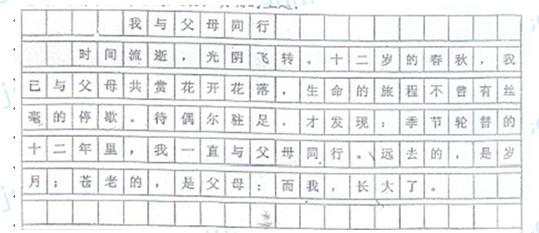 我与父母同行
时间流逝，光阴飞转。十二岁的春秋，我
己与父母共赏花开花落，生命的旅程不曾有丝
毫的停歇。待偶尔驻足，才发现：季节轮替的
十二年里，我一直与父母同行。远去的，是岁
月；苍老的，是父母；而我，长大了。